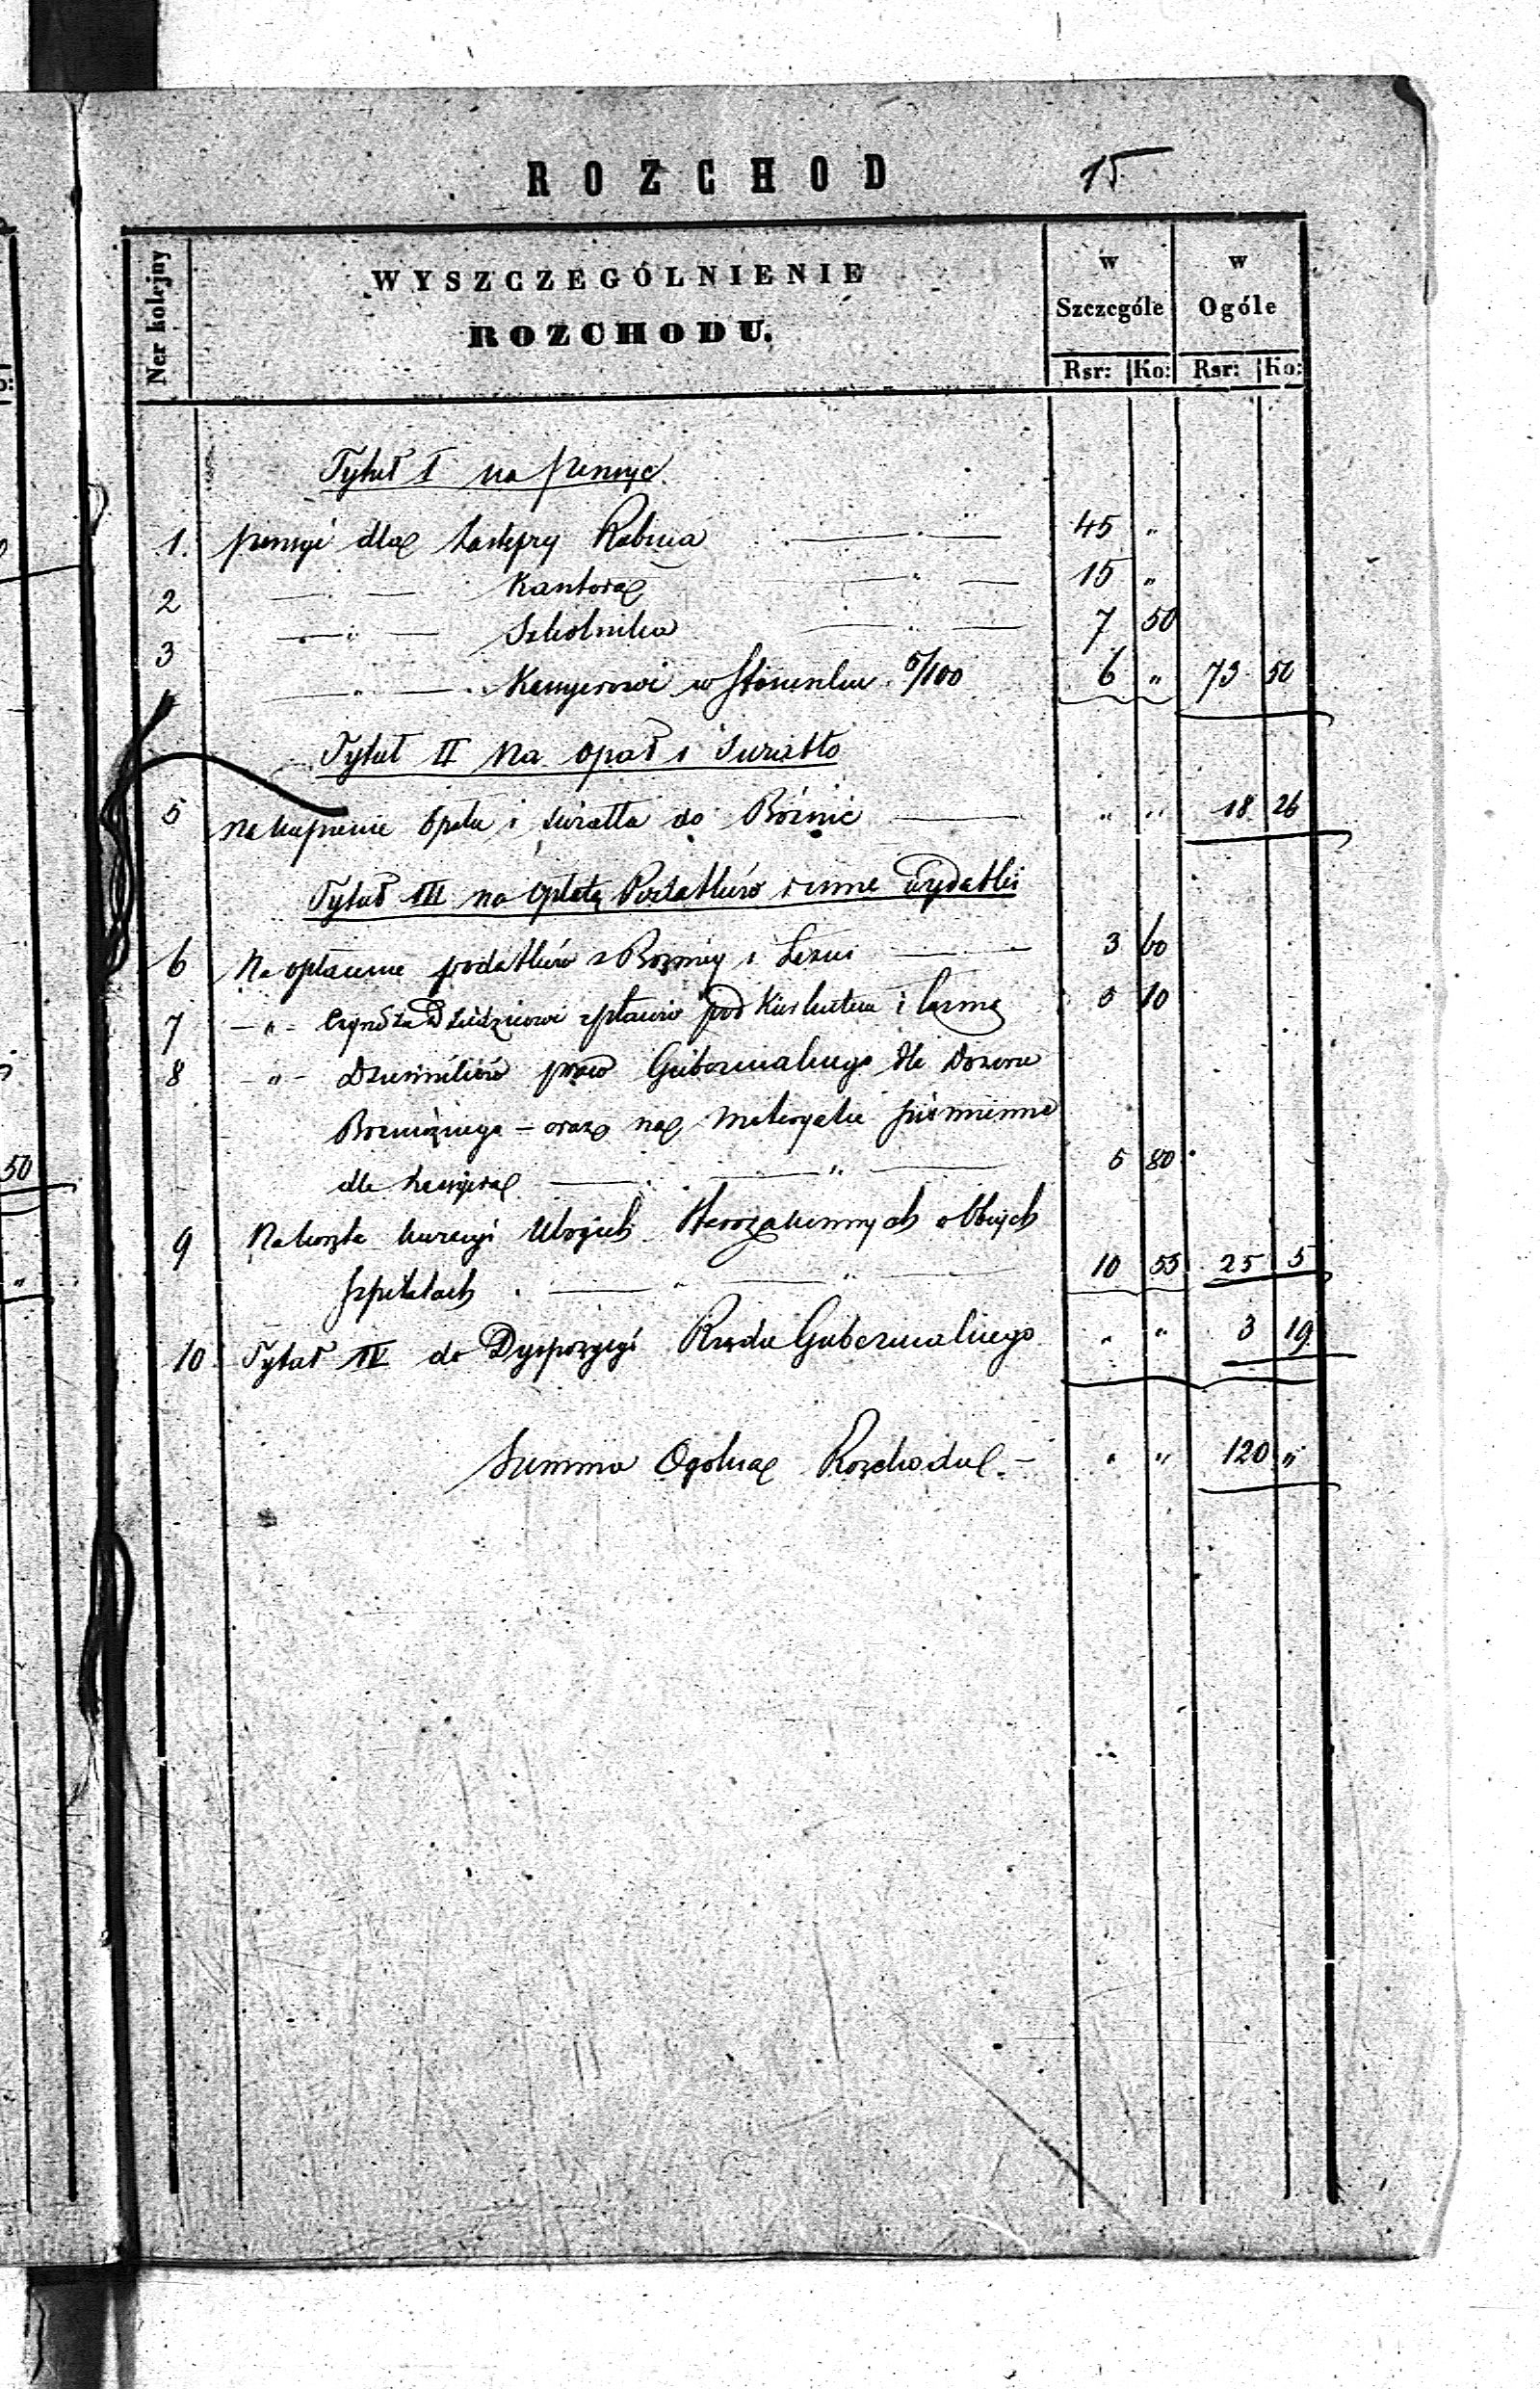 ROZCHOD 15
Ner kolejny
WYSZCZEGÓLNIENIE
ROZCHODU.
w Szczególe
w Ogóle
Rsr: Ko: Rsr: Ko:
Tytuł I na pensye
1. pensyi dla Zastępcy Rabina 45 "
2 — " — Kantora 15 "
3 — " — Szkolnika 7 50
— " — Kassyerowi w stosunku 5/100 6 " 73 50
Tytuł II Na opał i światło
5 Na kupienie Opału i światła do Bóżnic " " 18 26
Tytuł III na Opłatę Podatków i inne wydatki
6 Na opłacenie podatków z Bóżnicy i 3 60
7 — " — Czynszu Dziedzicowi z placów pod i 5 10
8 — " — Dzienników praw Gubernialnego dla Dozoru
Bóżniczego — oraz na Materyały piśmienne
dla Kassyera — " — 5 80
9 Na koszta kuracyi Ubogich Starozakonnych obcych
szpitalach — " — 10 55 25 5
10 Tytuł IV do Dyspozycyi Rządu Gubernialnego " " 3 19
Summa Ogólna Rozchodu. — " " 120 "
50
"